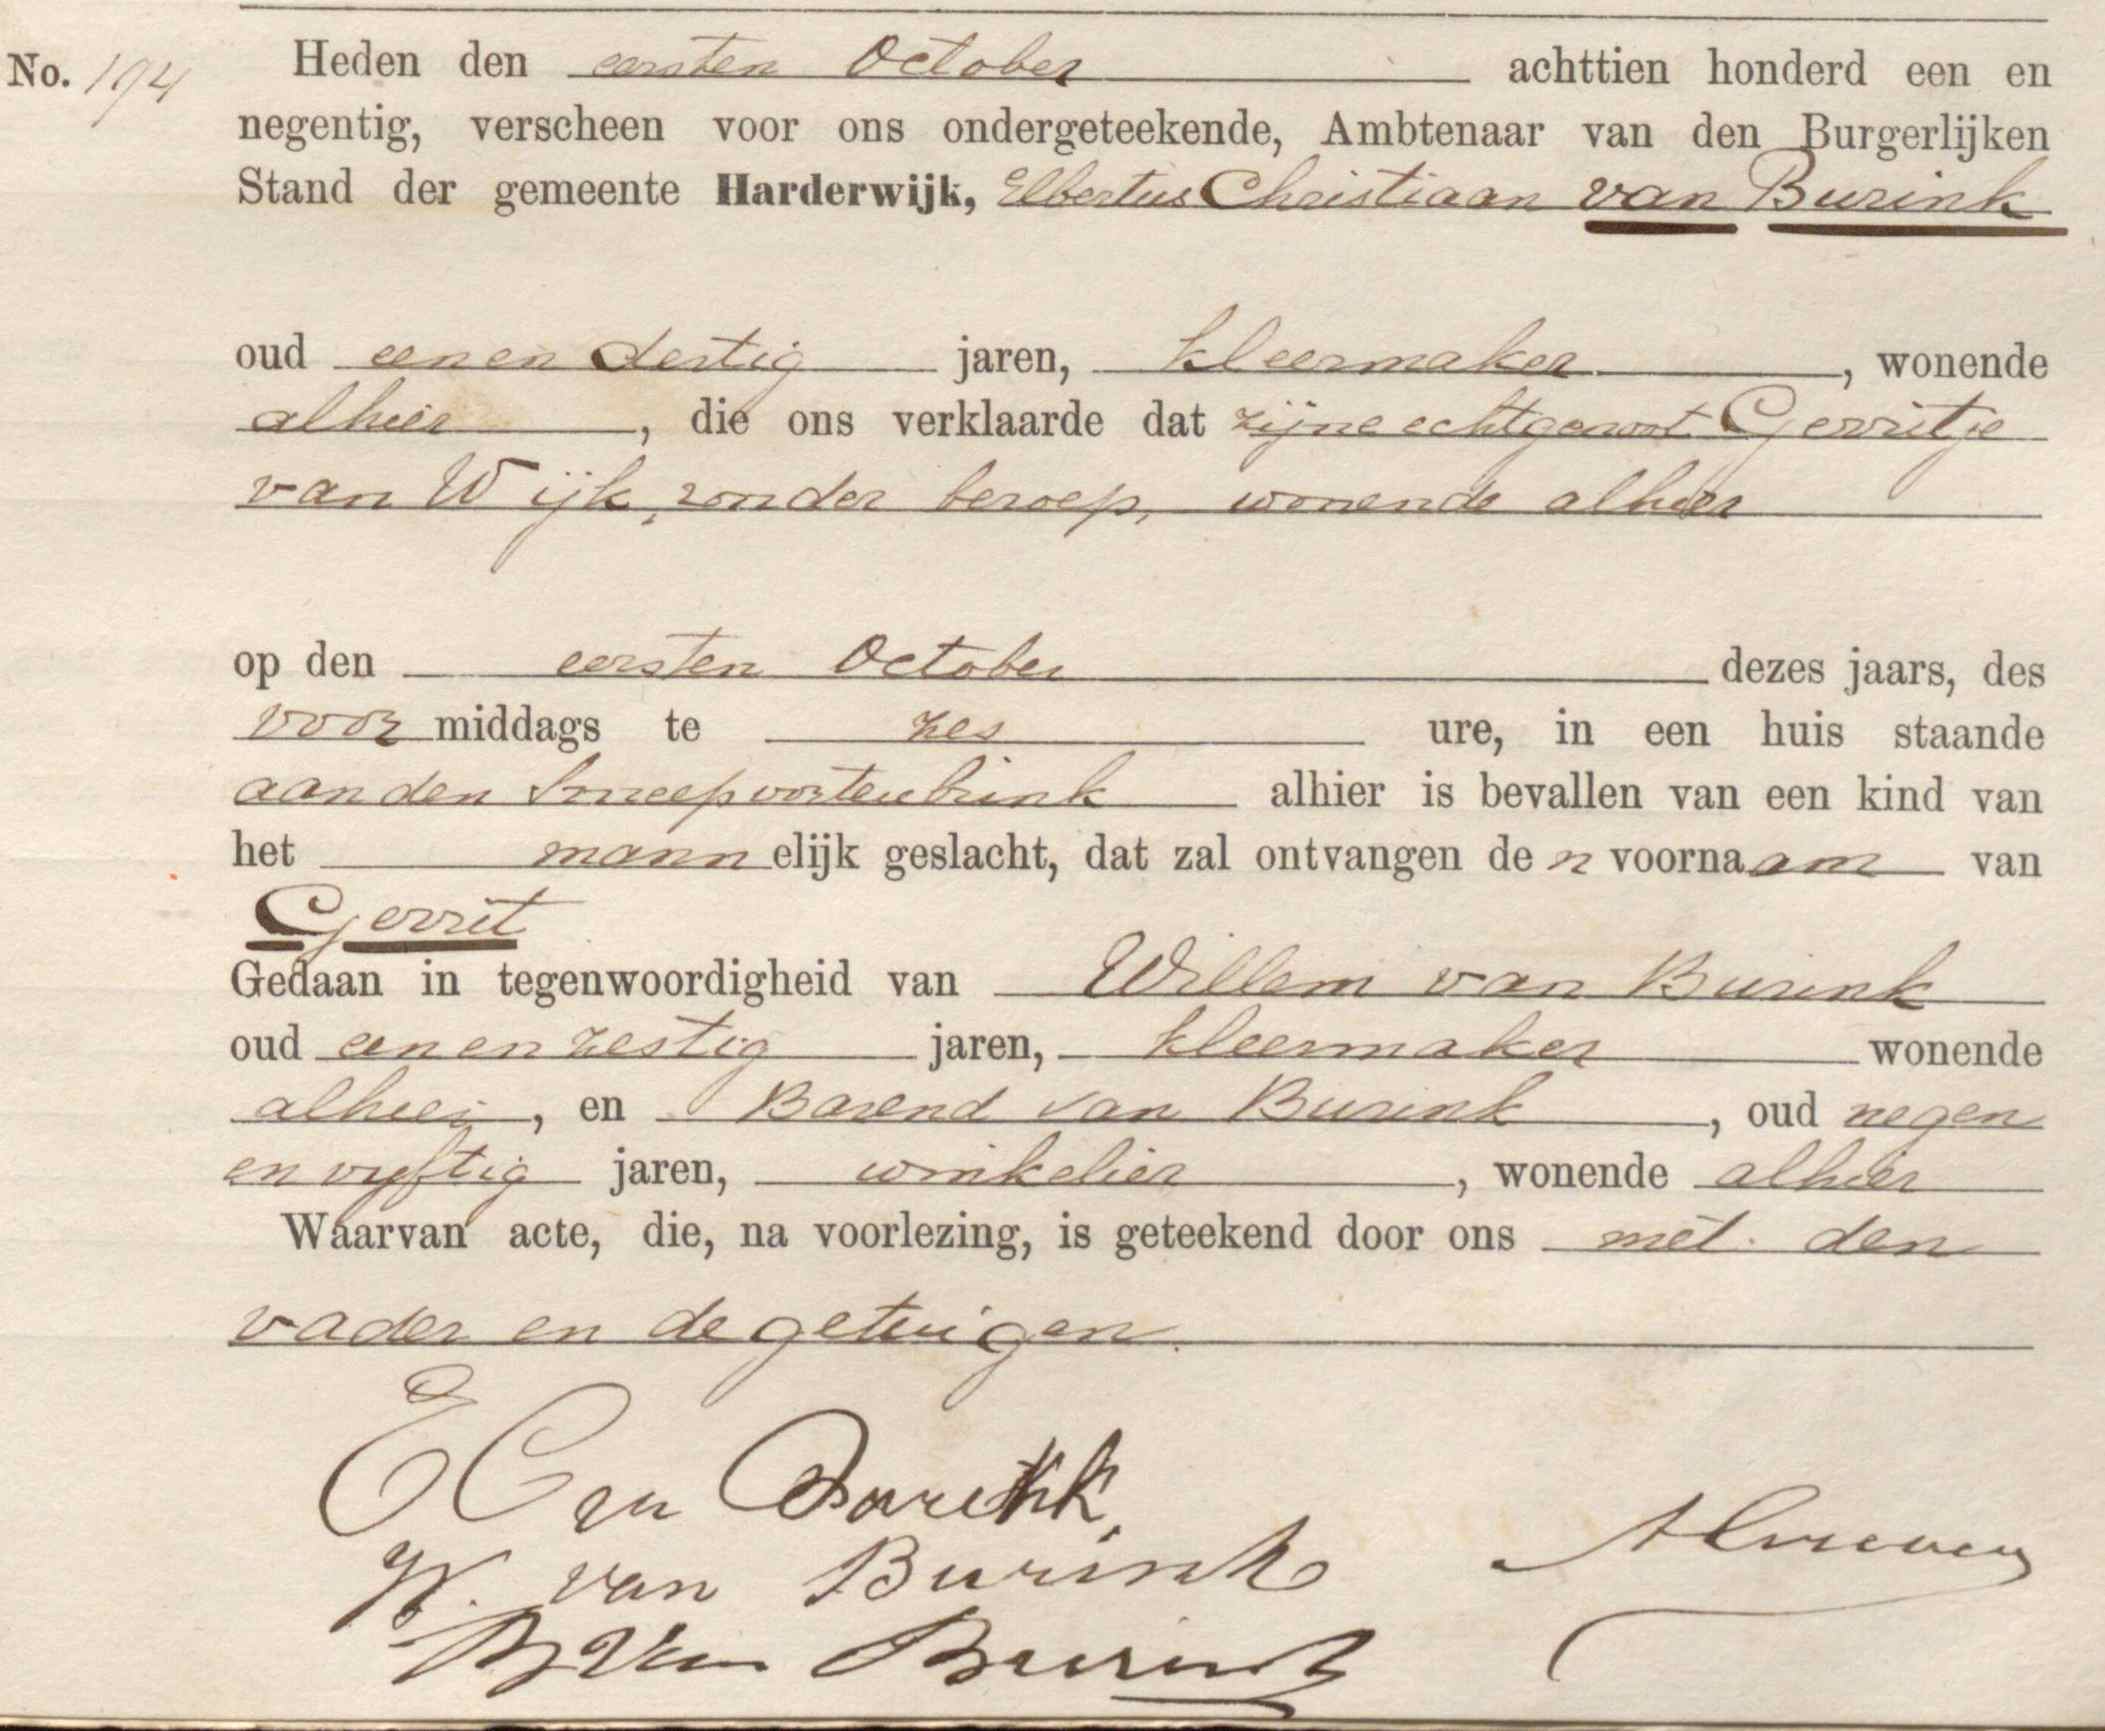 No. 194 Heden den eersten October achttien honderd een en
negentig, verscheen voor ons ondergeteekende, Ambtenaar van den Burgerlijken
Stand der gemeente Harderwijk, Elbertus Christiaan van Burink
oud een en dertig jaren, kleermaker, wonende
alhier, die ons verklaarde dat zijne echtgenoot Gerritje
van Wijk, zonder beroep, wonende alhier
op den eersten October dezes jaars, des
voor middags te zes ure, in een huis staande
aan den Smeepoortenbrink alhier is bevallen van een kind van
het mannelijk geslacht, dat zal ontvangen den voornaam van
Gerrit
Gedaan in tegenwoordigheid van Willem van Burink
oud een en zestig jaren, kleermaker wonende
alhier, en Barend van Burink, oud negen
en vyftig jaren, winkelier, wonende alhier
Waarvan acte, die, na voorlezing, is geteekend door ons met den
vader en de getuigen.
E C van Burink,
W. van Burink
B van Burink